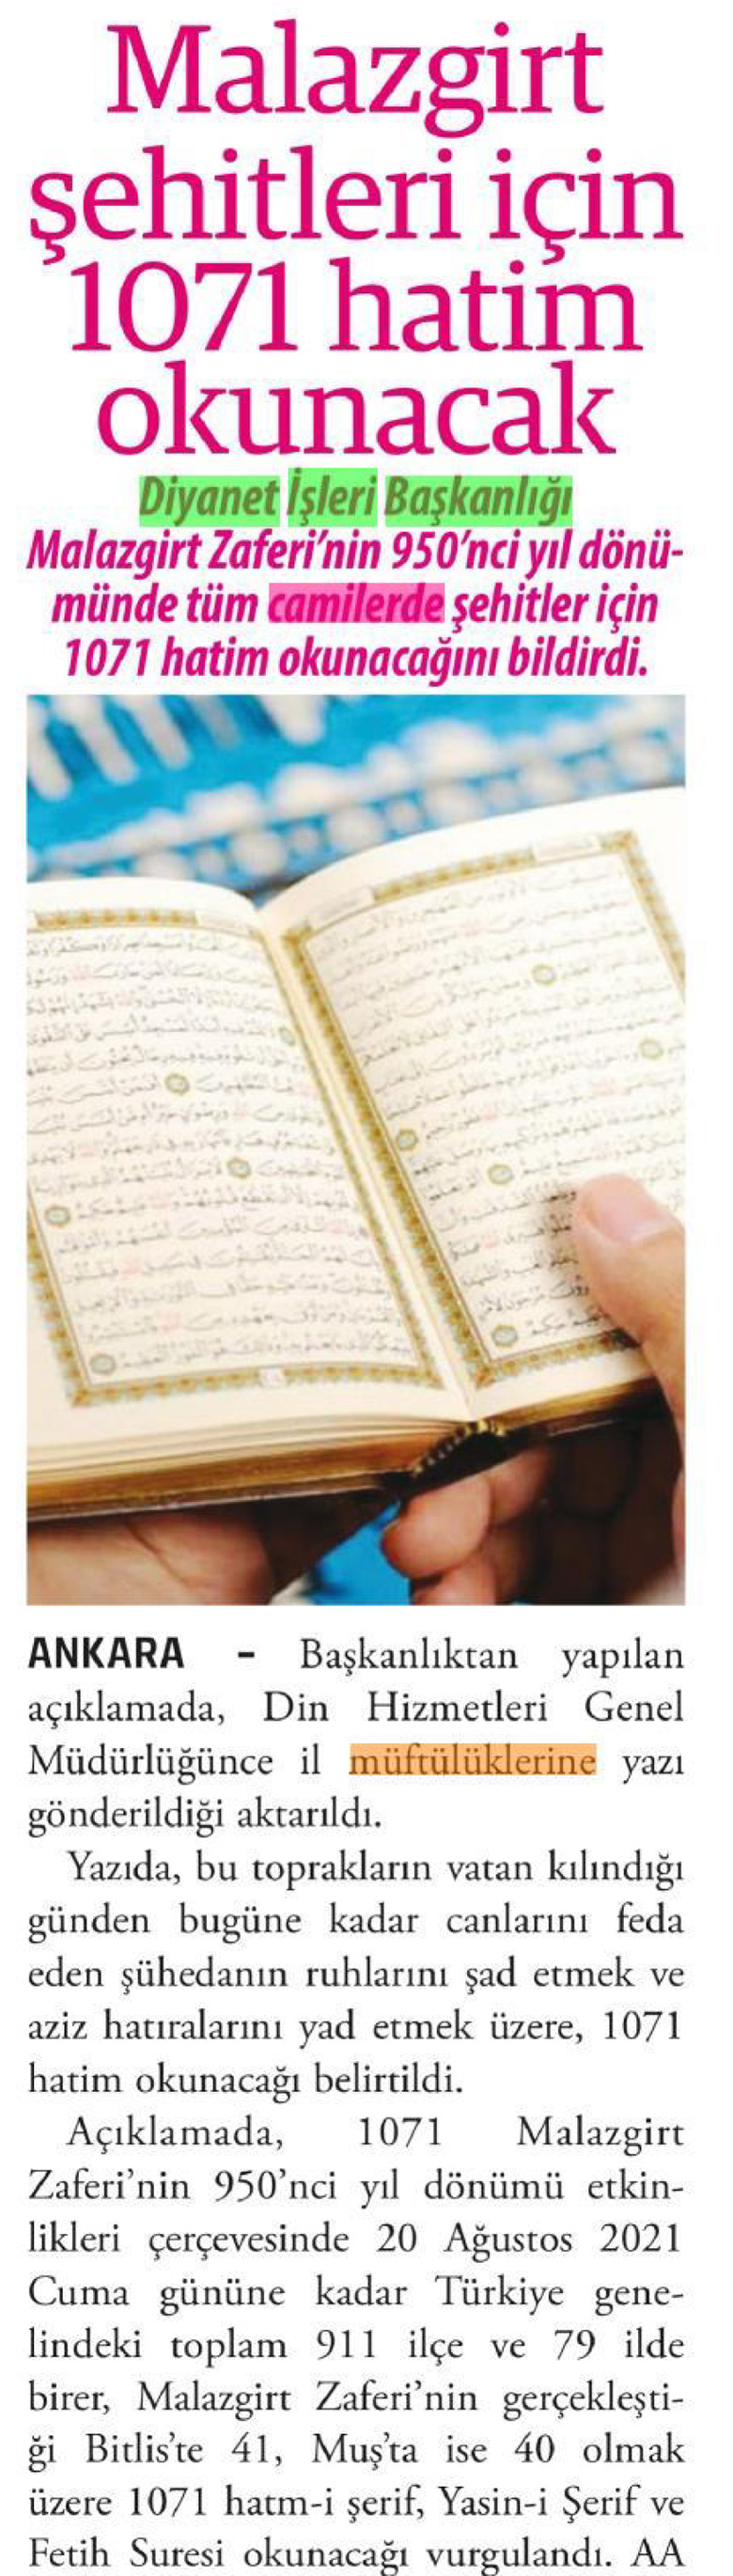 Malazgirt
şehitleri için
1071 hatim
okunacak
Diyanet İşleri Başkanlığı
Malazgirt Zaferi’nin 950’nci yıl dönü-
münde tüm camilerde şehitler için
1071 hatim okunacağını bildirdi.
ANKARA - Başkanlıktan yapılan
açıklamada, Din Hizmetleri Genel
Müdürlüğünce il müftülüklerine yazı
gönderildiği aktarıldı.
Yazıda, bu toprakların vatan kılındığı
günden bugüne kadar canlarını feda
eden şühedanın ruhlarını şad etmek ve
aziz hatıralarını yad etmek üzere, 1071
hatim okunacağı belirtildi.
Açıklamada, 1071 Malazgirt
Zaferi’nin 950’nci yıl dönümü etkin-
likleri çerçevesinde 20 Ağustos 2021
Cuma gününe kadar Türkiye gene-
lindeki toplam 911 ilçe ve 79 ilde
birer, Malazgirt Zaferi’nin gerçekleşti-
ği Bitlis’te 41, Muş’ta ise 40 olmak
üzere 1071 hatm-i şerif, Yasin-i Şerif ve
Fetih Suresi okunacağı vurgulandı. AA